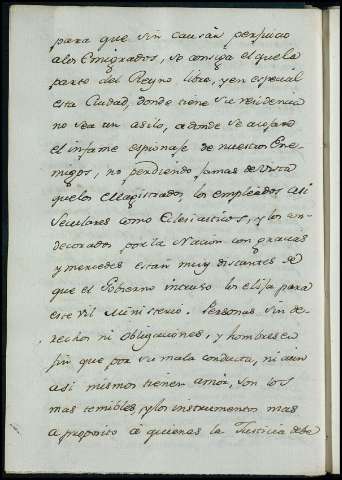 para que sin causar perjuicio
a los Emigrados, se consiga el que la
parte del Reyno libre, y en especial
esta Ciudad, donde tiene su residencia
no sea un asilo, a donde se acoja
el infame espionage de nuestros Ene-
migos, no perdiendo jamas de vista
que los Magistrados, los empleados asi
Seculares como Eclesiasticos, y los con-
decorados por la Nacion con gracias
y mercedes estan muy distantes de
que el Gobierno intruso los elija para
este vil Ministerio. Personas sin de-
rechos ni obligaciones, y hombres en
fin que por su mala conducta, ni aun
asi mismos tienen amor, son los
mas temibles, y los instrumentos mas
a proposito á quienes la Justicia debe